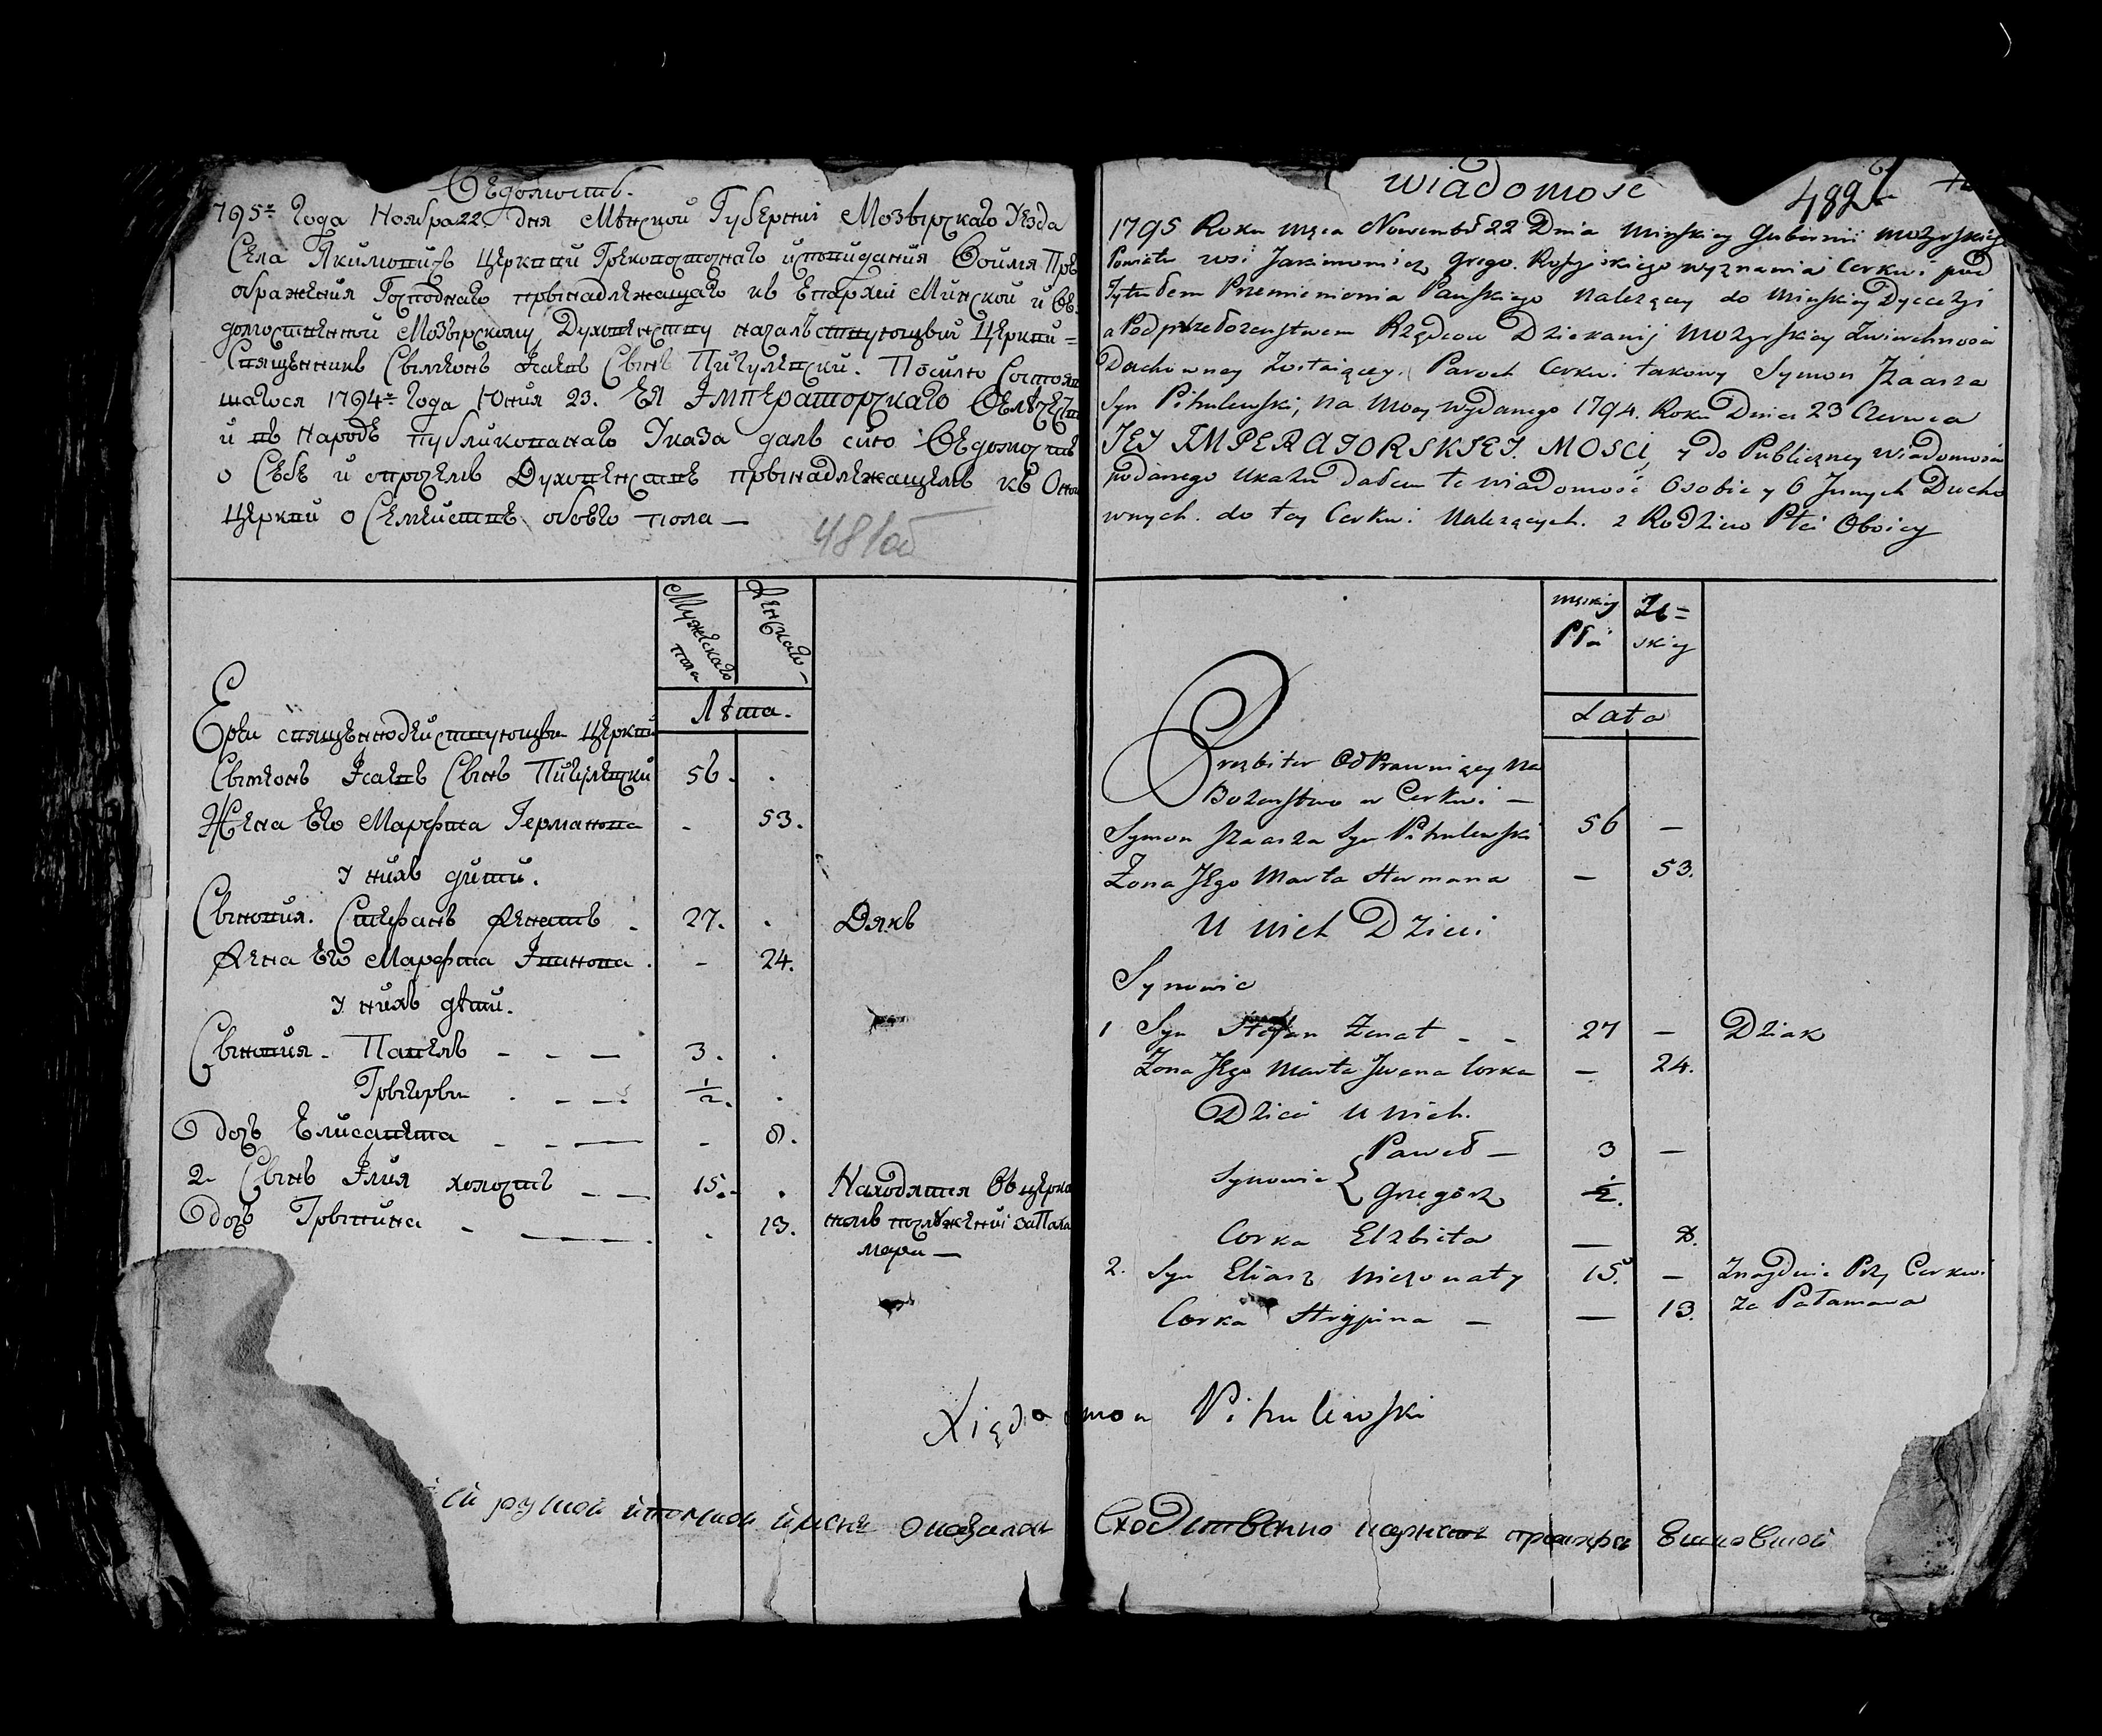 Ведомость.
795г Года Ноября 22 дня Мѣнской Губернии Мозырскаго Уезда
Села Якимович Церкви Грекороссискаго исповидания Воимя Прѣ
ображения Господнаго прынадлежащаго къ Епархии Минской и Вѣ
домостненной Мозырскому Духовенству началствующый Церкви =
Священникъ Сымеонъ Исаевъ Сынъ Пигулевски. По силѣ Состояв
шагося 1794г Года Июния 23. ЕЯ Императорскаго Велѣчест
и въ Народъ публикованаго Указа далъ сию Ведомость
о Себѣ и опрочемъ Духовенствѣ прынадлежащемъ къ Оной
Церкви о Семействѣ обоего пола —
481об
Мужескаго пола
Женскаго –
Лѣта.
Ерѣи священнодействующѣи Церкви
Сымеонъ Исаевъ Сынъ Пигулевски 56. .
Жена Его Марфта Германова - 53.
У нихъ дити.
Сыновия. Стефанъ Женатъ . 27. . Дякъ
Жена Его Марфта Иванова . - 24.
У нихъ дѣти.
Сыновия - Павелъ - - — 3. .
Грыгоры . - — 1/2. .
Дочь Елисавета - - — - 8.
2- Сынъ Илия холостъ - — 15. . Находится Въ церко
Дочь Грыпина - — . 13. номъ послѣжении за Пала
мара —
Wiadomosc
482
1795 Roku męca Nowembr 22 Dnia Minskiey Gubernii Mozyrskiego
Powiatu wsi Jakimowicz Grego. Rossyiskiego wyznania Cerkwi pod
Tytułem Przemienienia Panskiego Nalezącey do Minskiey Dyecezyi
a Pod przełożenstwem Rządcow Dziekanij Mozyrskiey Zwierchnosci
Duchowney Zostaiącey. Paroch Cerkwi takowy Symon Izaasza
Syn Pihulewski, Na Mocy wydanego 1794. Roku Dnia 23 Czerwca
JEJ IMPERATORSKIEJ. MOSCI, y do Publiczney Wiadomosci
podanego Ukazu dałem te wiadomość Osobie y O Jnnych Ducho
wnych. do tey Cerkwi Nalezących. z Rodzino Płci Oboiey
męskiey Płci
Ze=skiey
Lata
Prezbiter OdPrawuiący Na
Bożenstwo w Cerkwi —
Symon Izaasza Syn Pihulewski 56 —
Zona Jego Marta Hermana — 53.
U nich Dzieci
Synowie
1 Syn Stefan Zonat - - 27 — Dziak
Zona Jego Marta Jwana Corka — 24.
Dzieci U nich.
Synowie { Paweł — 3 —
Grzegorz 1/2.
Corka Elzbieta — 8.
2. Syn Eliasz Niezonaty 15. — Znaydzie Przy Cerkwi
Corka Hrypina — — 13. za Pałamara
Xiędz Symon Pihulewski
рукой
Сходственно